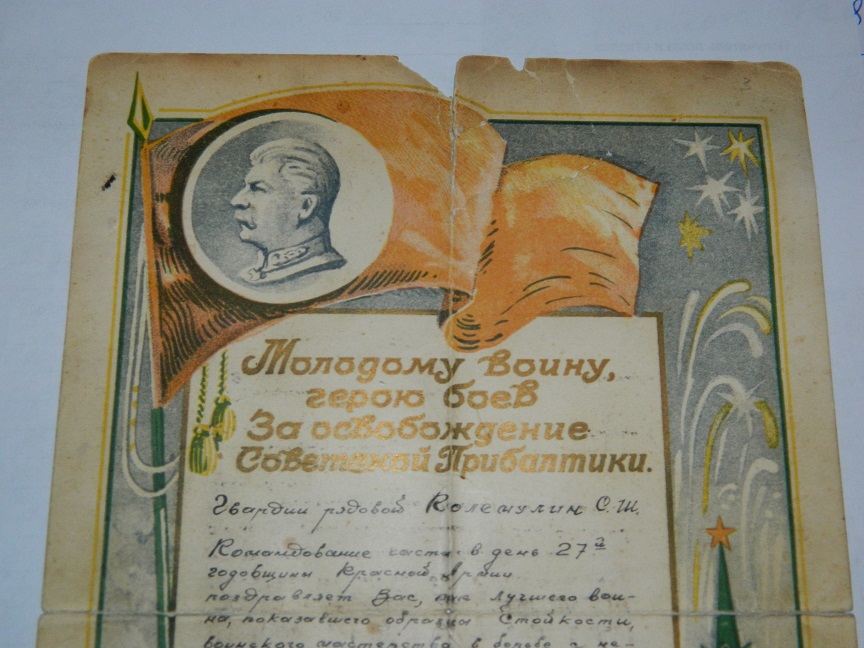 3
Молодому воину,
герою боев
За освобождение
Советской Прибалтики.
Гвардии рядовой Калемулин С.Ш.
Командование части в день 27й
годовщины Красной Армии
поздравляет Вас, как лучшего вои-
на, показавшего образцы стойкости,
воинского мастерства в борьбе с не-